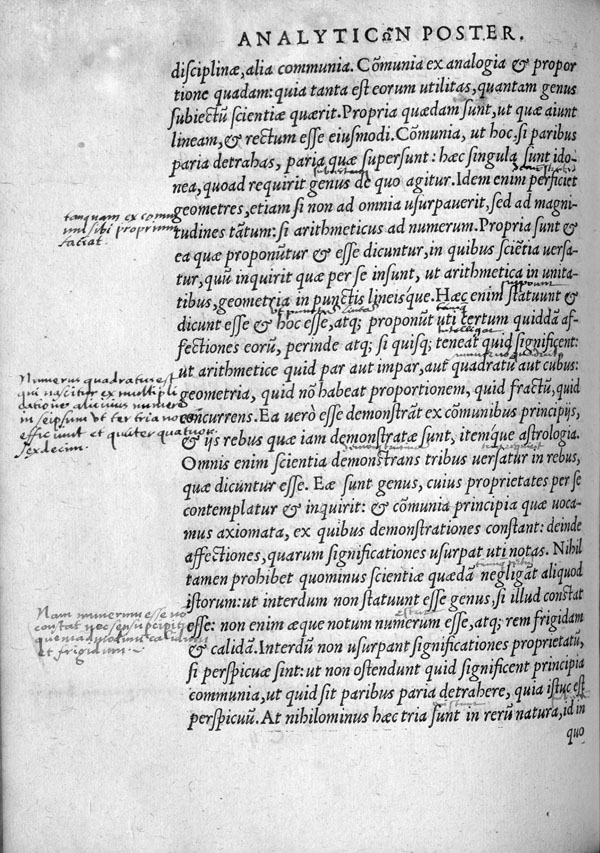 ANALYTICΩN POSTER.
disciplinæ, alia communia. Cōmunia ex analogia & propor
tione quadam: quia tanta est eorum utilitas, quantam genus
subiectū scientiæ quærit. Propria quædam sunt, ut quæ aiunt
lineam, & rectum esse eiusmodi. Cōmunia, ut hoc, si paribus
paria detrahas, paria quæ supersunt: hæc singula sunt ido-
nea, quoad requirit genus de quo agitur. Idem enim perficiet
geometres, etiam si non ad omnia usurpauerit, sed ad magni-
tudines tātum: si arithmeticus ad numerum. Propria sunt &
ea quæ proponūtur & esse dicuntur, in quibus sciētia uersa-
tur, quū inquirit quæ per se insunt, ut arithmetica in unita-
tibus, geometria in punctis lineisque. Hæc enim statuunt &
dicunt esse & hoc esse, atq; proponūt uti certum quiddā af-
fectiones eorū, perinde atq; si quisq; teneat quid significent:
ut arithmetice quid par aut impar, aut quadratū aut cubus:
geometria, quid nō habeat proportionem, quid fractū, quid
concurrens. Ea uerò esse demonstrāt ex cōmunibus principijs,
& ijs rebus quæ iam demonstratæ sunt, itémque astrologia.
Omnis enim scientia demonstrans tribus uersatur in rebus,
quæ dicuntur esse. Eæ sunt genus, cuius proprietates per se
contemplatur & inquirit: & cōmunia principia quæ uoca-
mus axiomata, ex quibus demonstrationes constant: deinde
affectiones, quarum significationes usurpat uti notas. Nihil
tamen prohibet quominus scientiæ quædā negligāt aliquod
istorum: ut interdum non statuunt esse genus, si illud constat
esse: non enim æque notum numerum esse, atq; rem frigidam
& calidā. Interdū non usurpant significationes proprietatū,
si perspicuæ sint: ut non ostendunt quid significent principia
communia, ut quid sit paribus paria detrahere, quia istuc est
perspicuū. At nihilominus hæc tria sunt in rerū natura, id in
quo
tanquam ex comu
nni sibi proprium
faciat.
Numerus quadratus est
qui nascitur ex multipli
catione alicuius numeri
in seipsum ut ter tria novem
efficiunt et quater quatuor
sexdecim.
Nam numerum esse no
constat
calidum
et frigidum